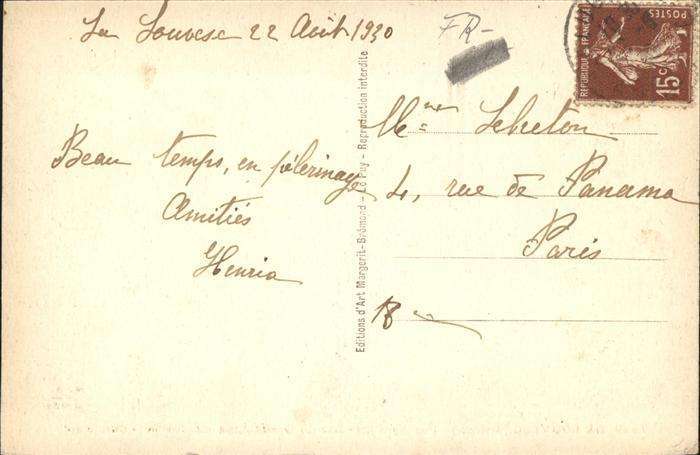 La Louvesc 22 Août 1930
FR-
Beau temps, en pèlerinage
Amitiés
Henria
Editions d'Art Margerit-Brémond - Le Puy - Reproduction interdite
POSTES
REPUBLIQUE FRANÇAISE
15c
Mme Lebreton
4, rue de Panama
Paris
18e